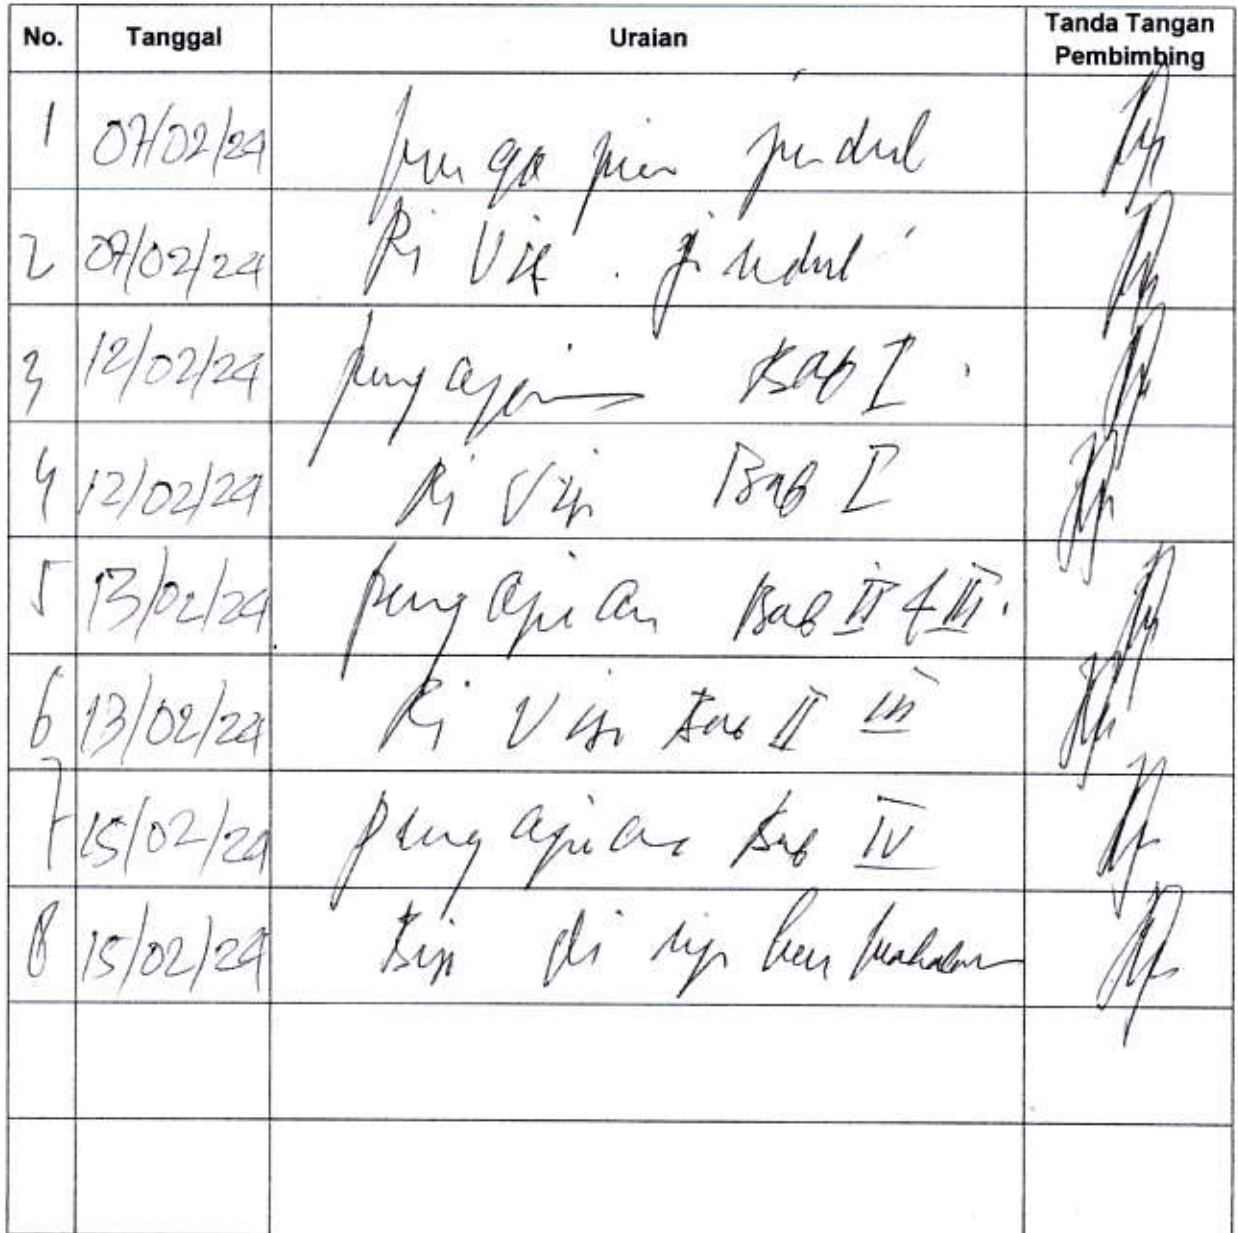 No. Tanggal Uraian Tanda Tangan Pembimbing
1 07/02/24 pengajuan judul
2 07/02/24 Rivisi judul
3 12/02/24 pengajuan Bab I
4 12/02/24 Rivisi Bab I
5 13/02/24 pengajuan Bab II & III
6 13/02/24 Rivisi Bab II III
7 15/02/24 pengajuan Bab IV
8 15/02/24 di